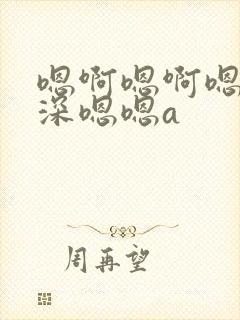 嗯啊嗯啊嗯
深嗯嗯a
周再望